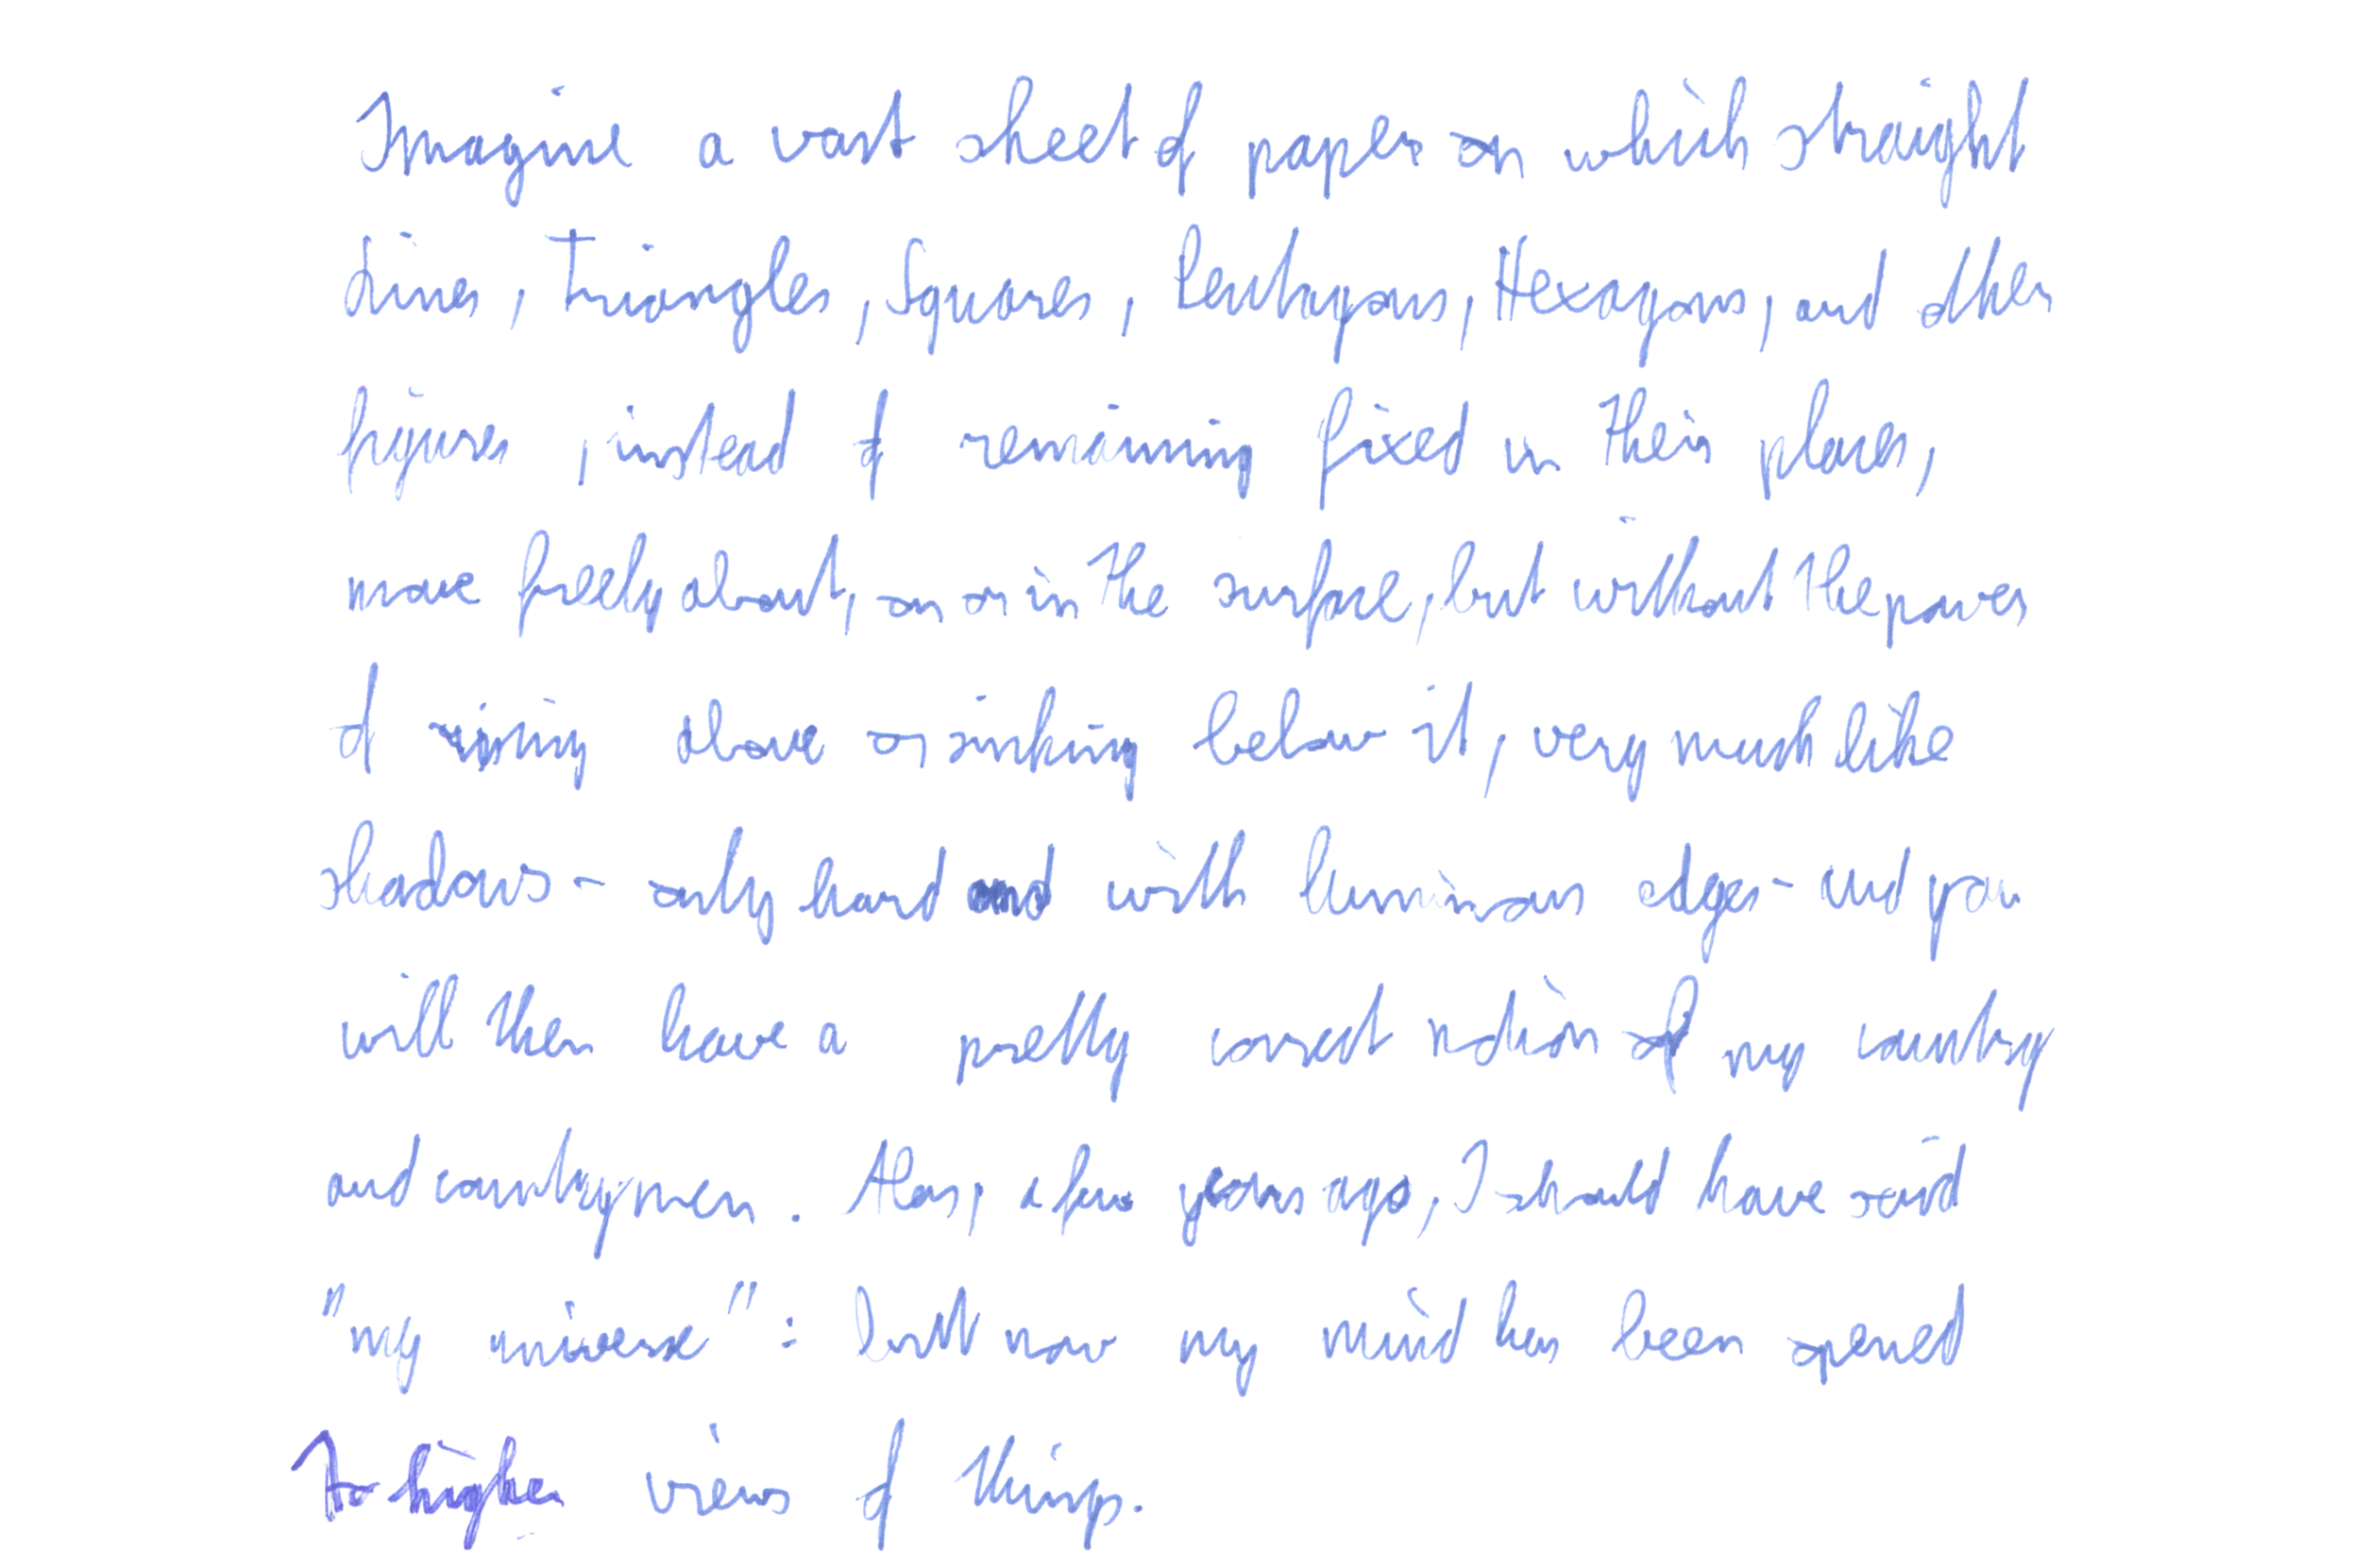 Imagine a vast sheet of paper on which straight
Lines, Triangles, Squares, Pentagons, Hexagons, and other
figures, instead of remaining fixed in their places,
move freely about, on or in the surface, but without the power
of rising above or sinking below it, very much like
shadows - only hard and with luminous edges - and you
will then have a pretty correct notion of my country
and countrymen. Alas, a few years ago, I should have said
"my universe": but now my mind has been opened
to higher views of things.